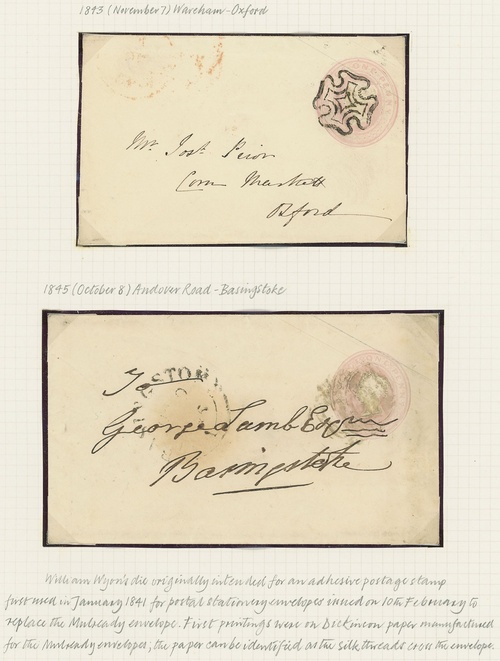 1843 (November 7) Wareham - Oxford
Mr Josh Prior
Corn Markett
Oxford
1845 (October 8) Andover Road - Basingstoke
To
George Lamb Esqr
Basingstoke
William Wyon's die originally intended for an adhesive postage stamp
first used in January 1841 for postal stationery envelopes issued on 10th February to
replace the Mulready envelope. First printings were on Dickinson paper manufactured
for the Mulready envelopes; the paper can be identified as the silk threads cross the envelope.